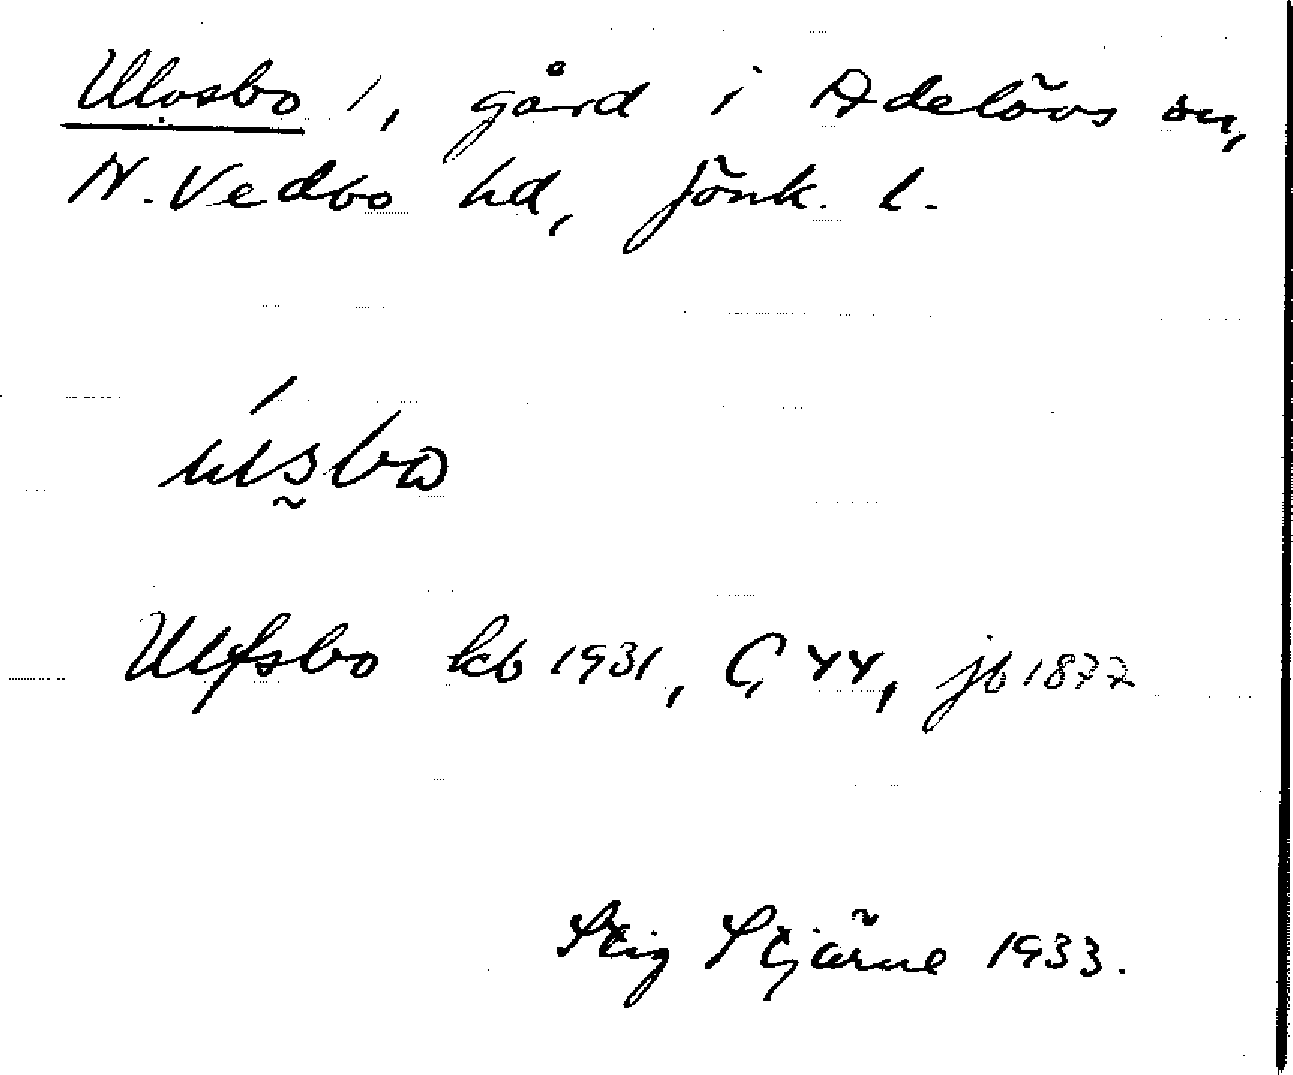 Ulvsbo 1, gård i Adelövs sn,
N. Vedbo hd, Jönk. l.
úls̰bo
Ulfsbo kb 1931, GK, jb 1877
Stig Stjärne 1933.